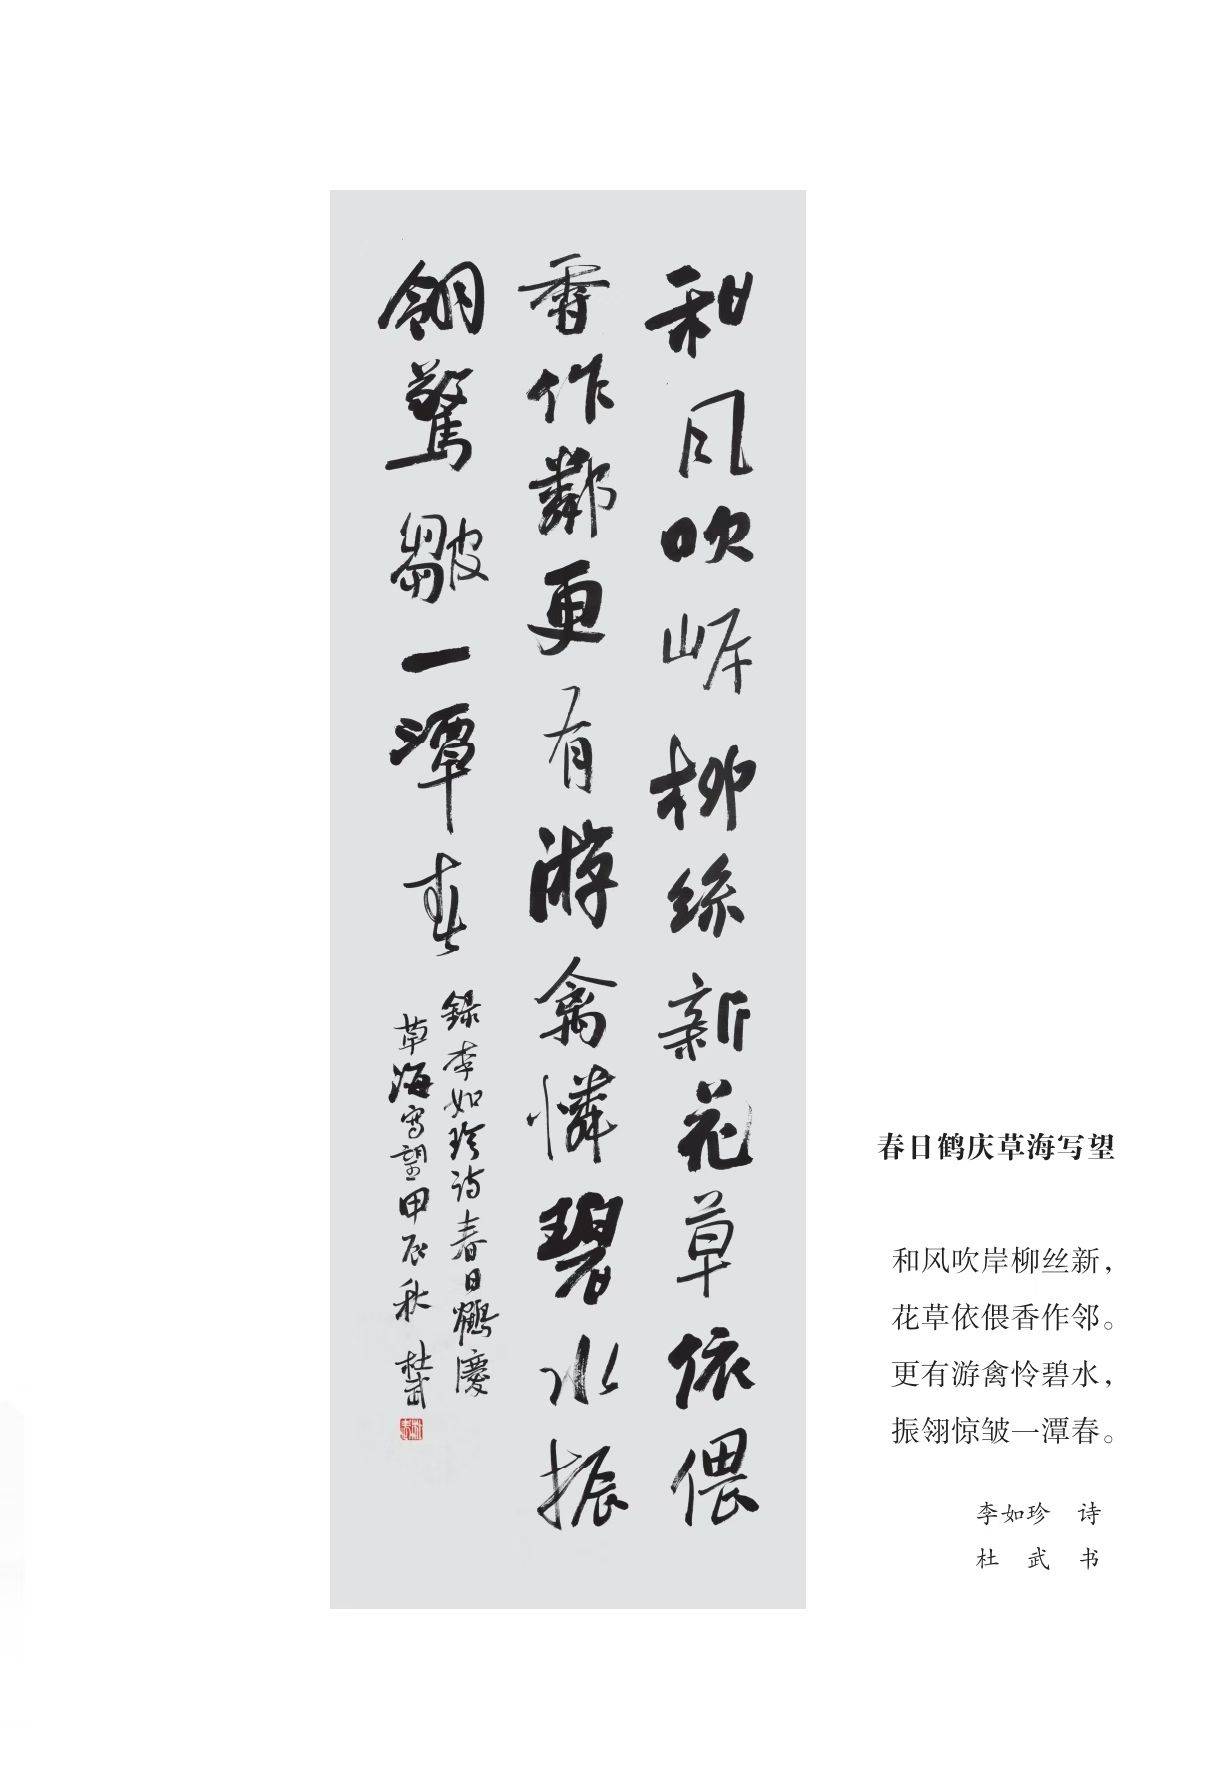 和风吹岸柳絲新花草依偎
香作鄰更有游禽憐碧水振
翎驚皺一潭春
錄李如珍诗春日鶴慶
草海寫望甲辰秋 杜武
春日鹤庆草海写望
和风吹岸柳丝新，
花草依偎香作邻。
更有游禽怜碧水，
振翎惊皱一潭春。
李如珍 诗
杜 武 书